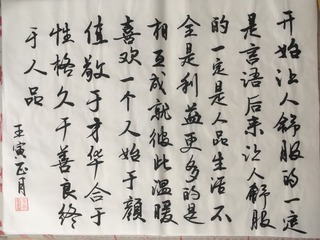 开始让人舒服的一定
是言语后来让人舒服
的一定是人品生活不
全是利益更多的是
相互成就彼此温暖
喜欢一个人始于颜
值敬于才华合于
性格久于善良终
于人品
壬寅正月